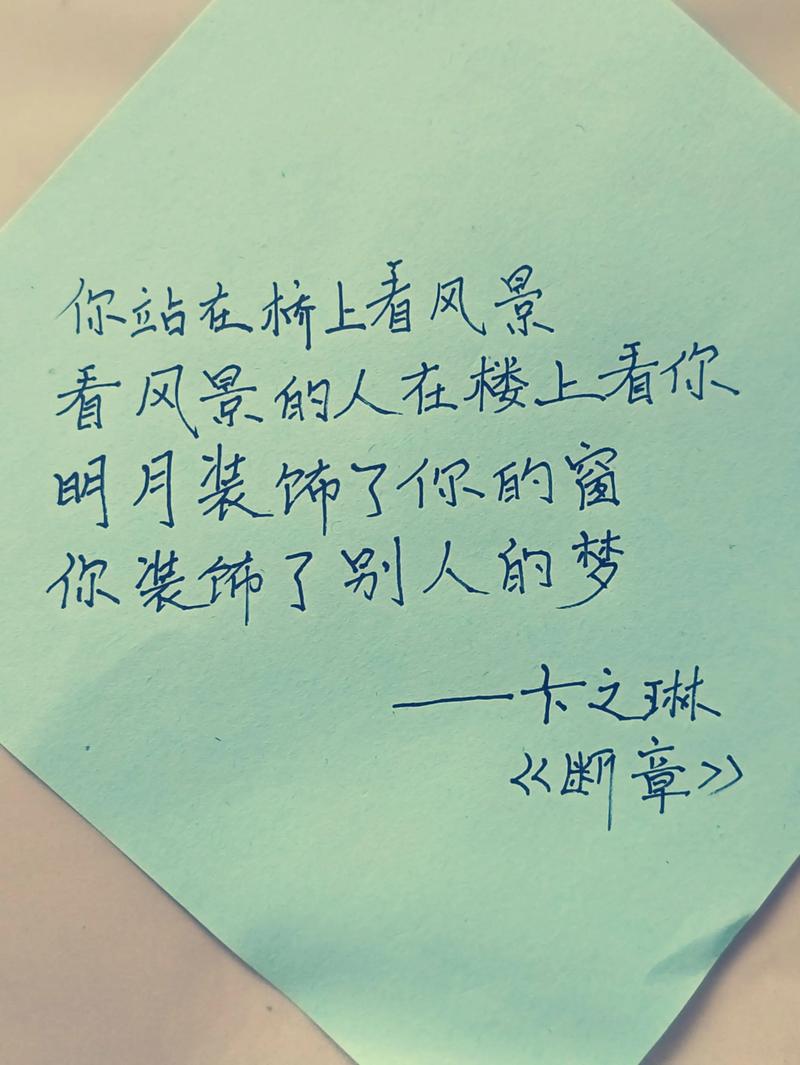 你站在桥上看风景
看风景的人在楼上看你
明月装饰了你的窗
你装饰了别人的梦
——卞之琳
《断章》